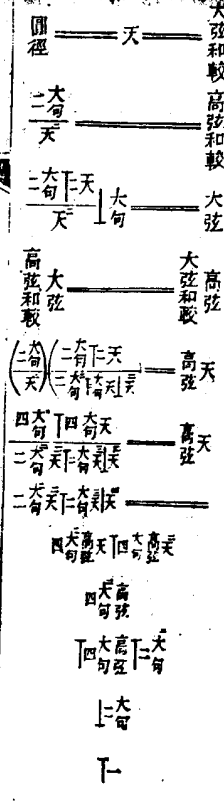 圓徑══天══大弦和較
二大句 天══高弦和較
二大句丅二天 天⊥大句══大弦
高弦和較 大弦══大弦和較 高弦
(二大句 天)(二大句丅二天 二大句丅大句天⊥天══高弦天
四大句丅四大句天 二大句天丅二大句天⊥天══高弦天
二大句天丅二大句天⊥天══
四大句高弦天丅四大句高弦天
四大句高弦
丅四大句高弦丅二大句
⊥二大句
丅一